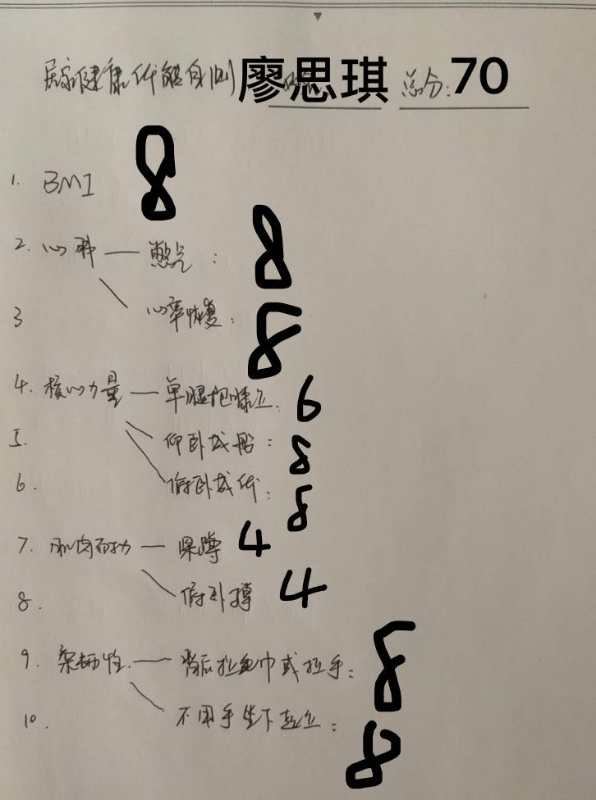 居家健康体能自测 廖思琪 总分:70
1. BMI 8
2. 心肺 — 憋气: 8
3 心率恢复: 8
4. 核心力量 — 单腿抱膝立: 6
5. 仰卧成船: 8
6. 俯卧成代: 8
7. 肌肉耐力 — 深蹲 4
8. 俯卧撑 4
9. 柔韧性 — 背后拉毛巾或拉手: 8
10. 不用手坐下起立: 8